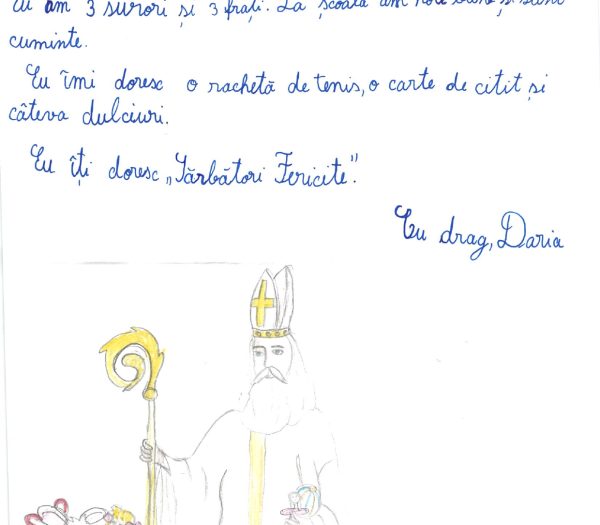 Eu am 3 surori și 3 frați. La școală am note bune și sunt
cuminte.
Eu îmi doresc o rachetă de tenis, o carte de citit și
câteva dulciuri.
Eu îți doresc „Sărbători Fericite".
Cu drag, Daria